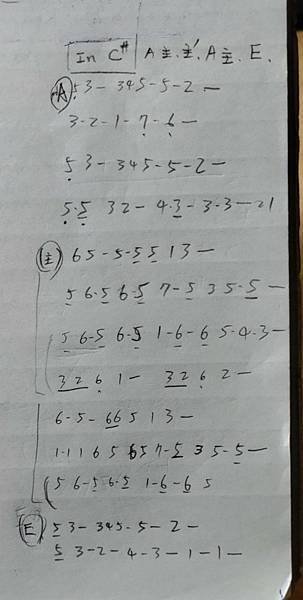 In C# A 主. 主' A 主. E.
A 5 3 - 345 - 5 - 2 —
3 - 2 - 1 - 7 - 6 -
5 3 - 345 - 5 - 2 —
5·5 32 - 4·3 - 3·3 — 21
主 65 - 5 - 5 5 1 3 —
5 6·5 6·5 7 - 5 3 5 - 5 —
5 6·5 6·5 1 - 6 - 6 5·4·3 —
3 2 6 1 — 3 2 6 2 —
6 - 5 - 66 5 1 3 —
1·1 1 6 5 65 7 - 5 3 5 - 5 —
5 6 - 5 6·5 1 - 6 - 6 5
E 5 3 - 345 - 5 - 2 -
5 3 - 2 - 4 - 3 - 1 - 1 —